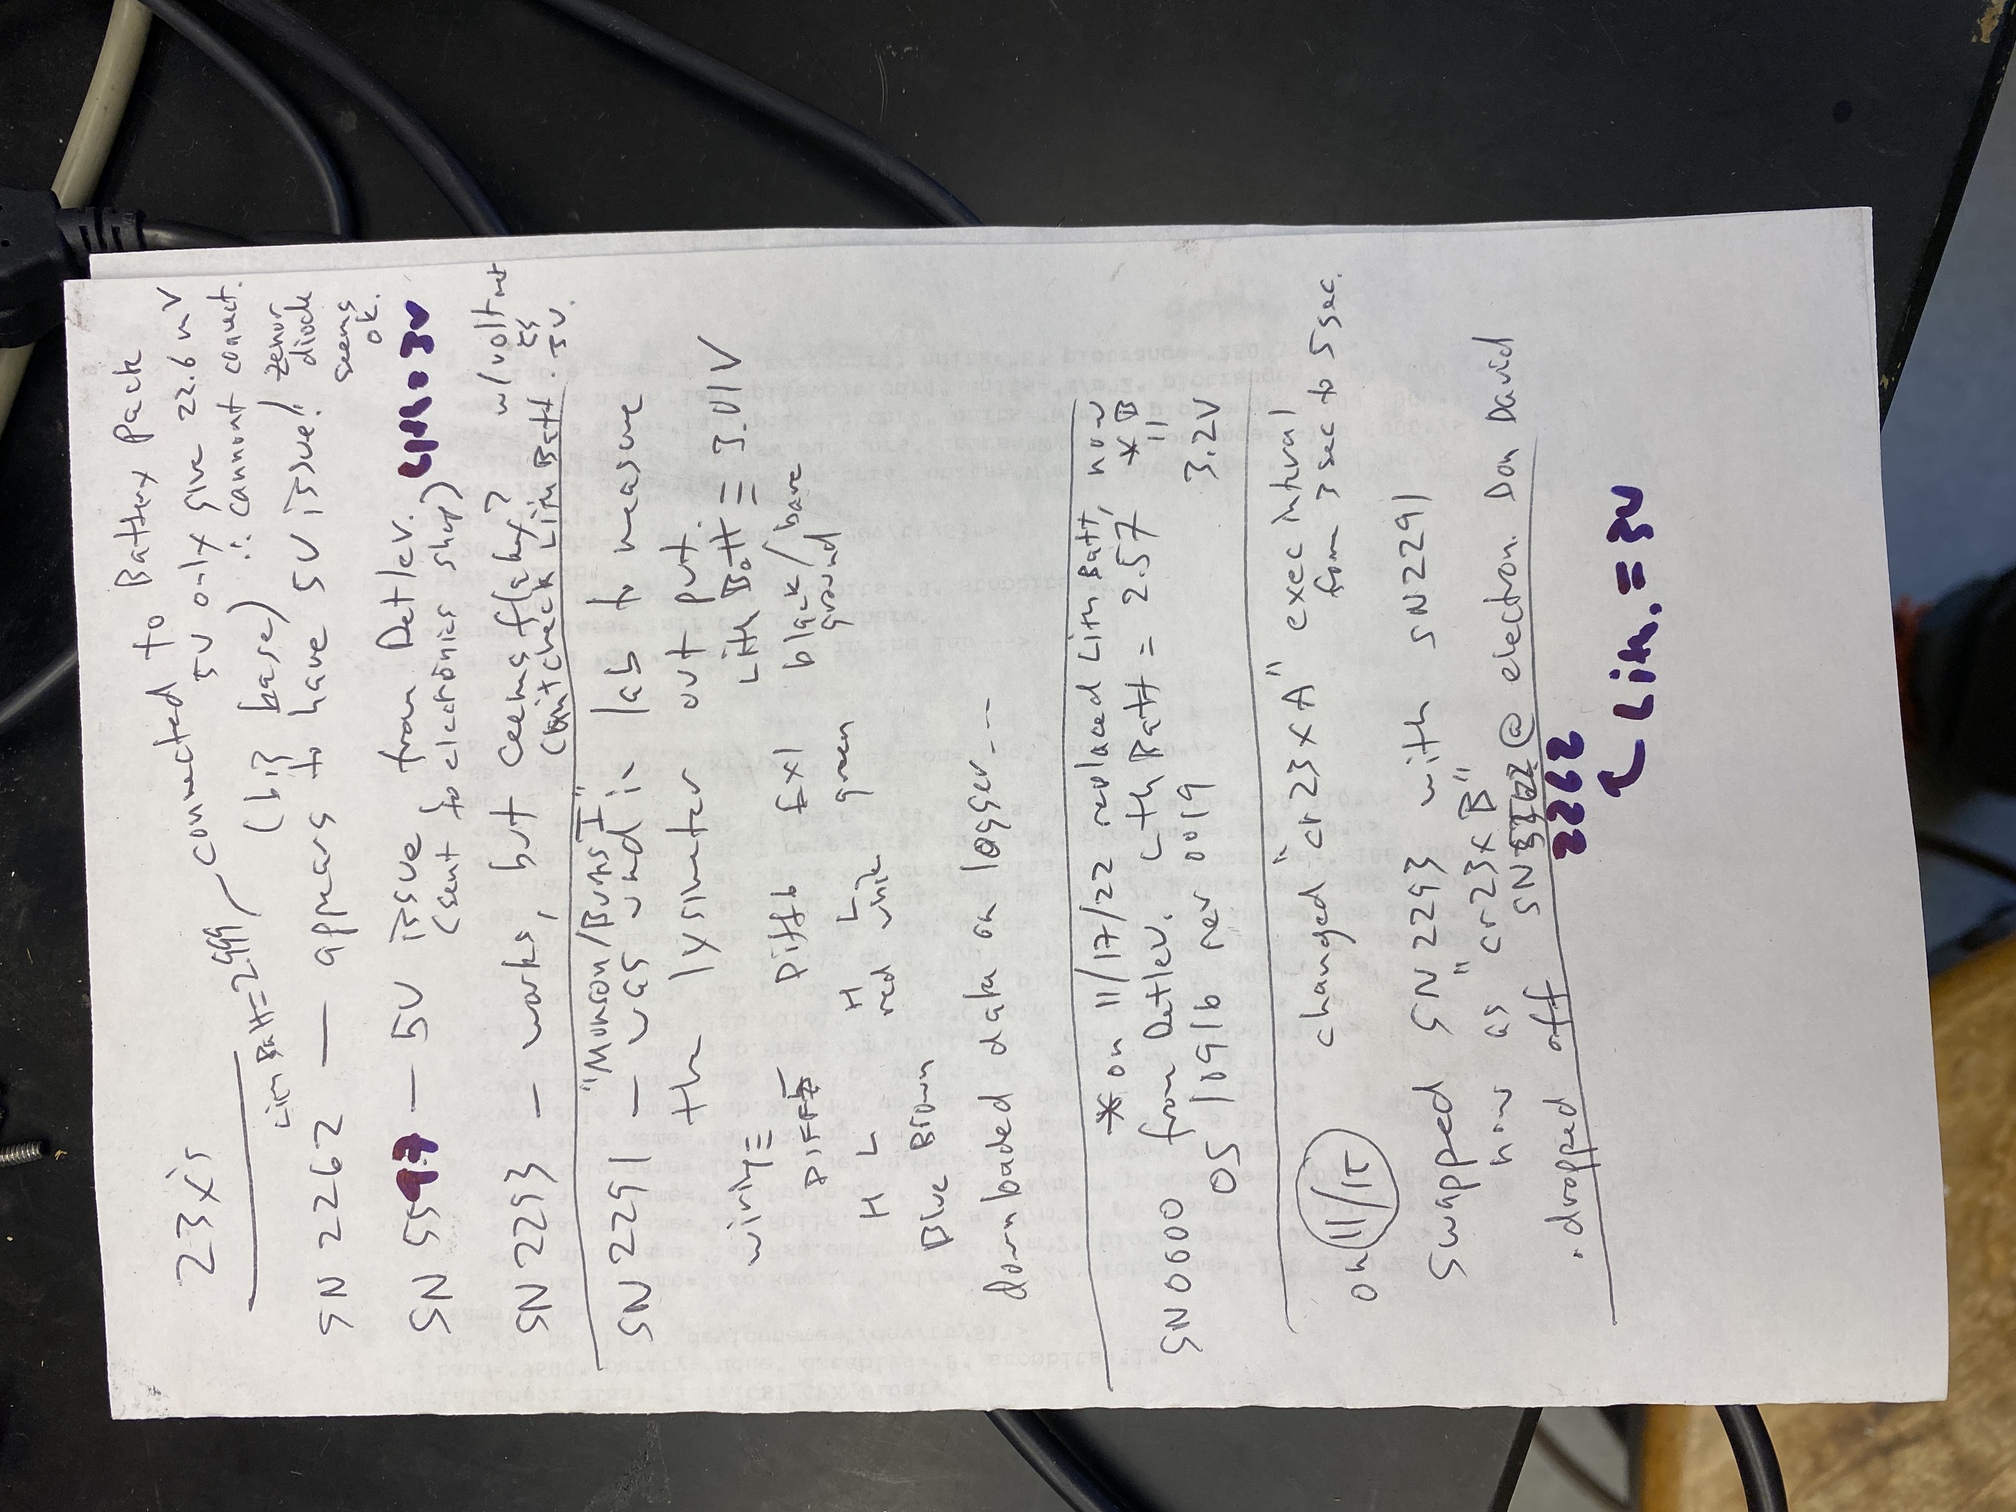 23x's
Lith Batt=2.999
connected to Battery Pack
5V only give 22.6 mV
(big base) ∴ cannont connect.
SN 2262 — appears to have 5V issue! / zenor diode seems ok.
SN 5597 — 5V issue from Detlev. Lith = 3V
(sent to electronics shop)
SN 2293 — works, but seems flakey? w/volt met
Can't check Lith Batt.
"Munson/Burns I"
SN 2291 — was used in lab to measure
the lysimeter out put.
Lith Batt = 3.01V
wiring =
DIFF Diff 6 Ex1 black/bare
ground
H L H L green
red white
Blue Brown
downloaded data on logger...
* on 11/17/22 replaced Lith Batt, now
SN 0600 from Detlev. Lth Batt = 2.57, *B
=
OS 1091b rev 0019 3.2V
on 11/15 changed "cr23xA" exec interval
from 3 sec to 5 sec.
Swapped SN 2293 with SN2291
now as "cr23xB"
. dropped off SN @ electron. Don David
2262
Lith. = 3V